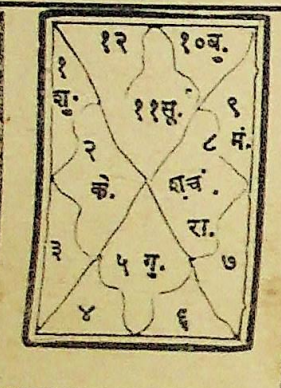 १२ १०बु.
१
शु. ११सू. ९
मं.
२ ८
के. श.चं.
रा.
३ ५ गु. ७
४ ६